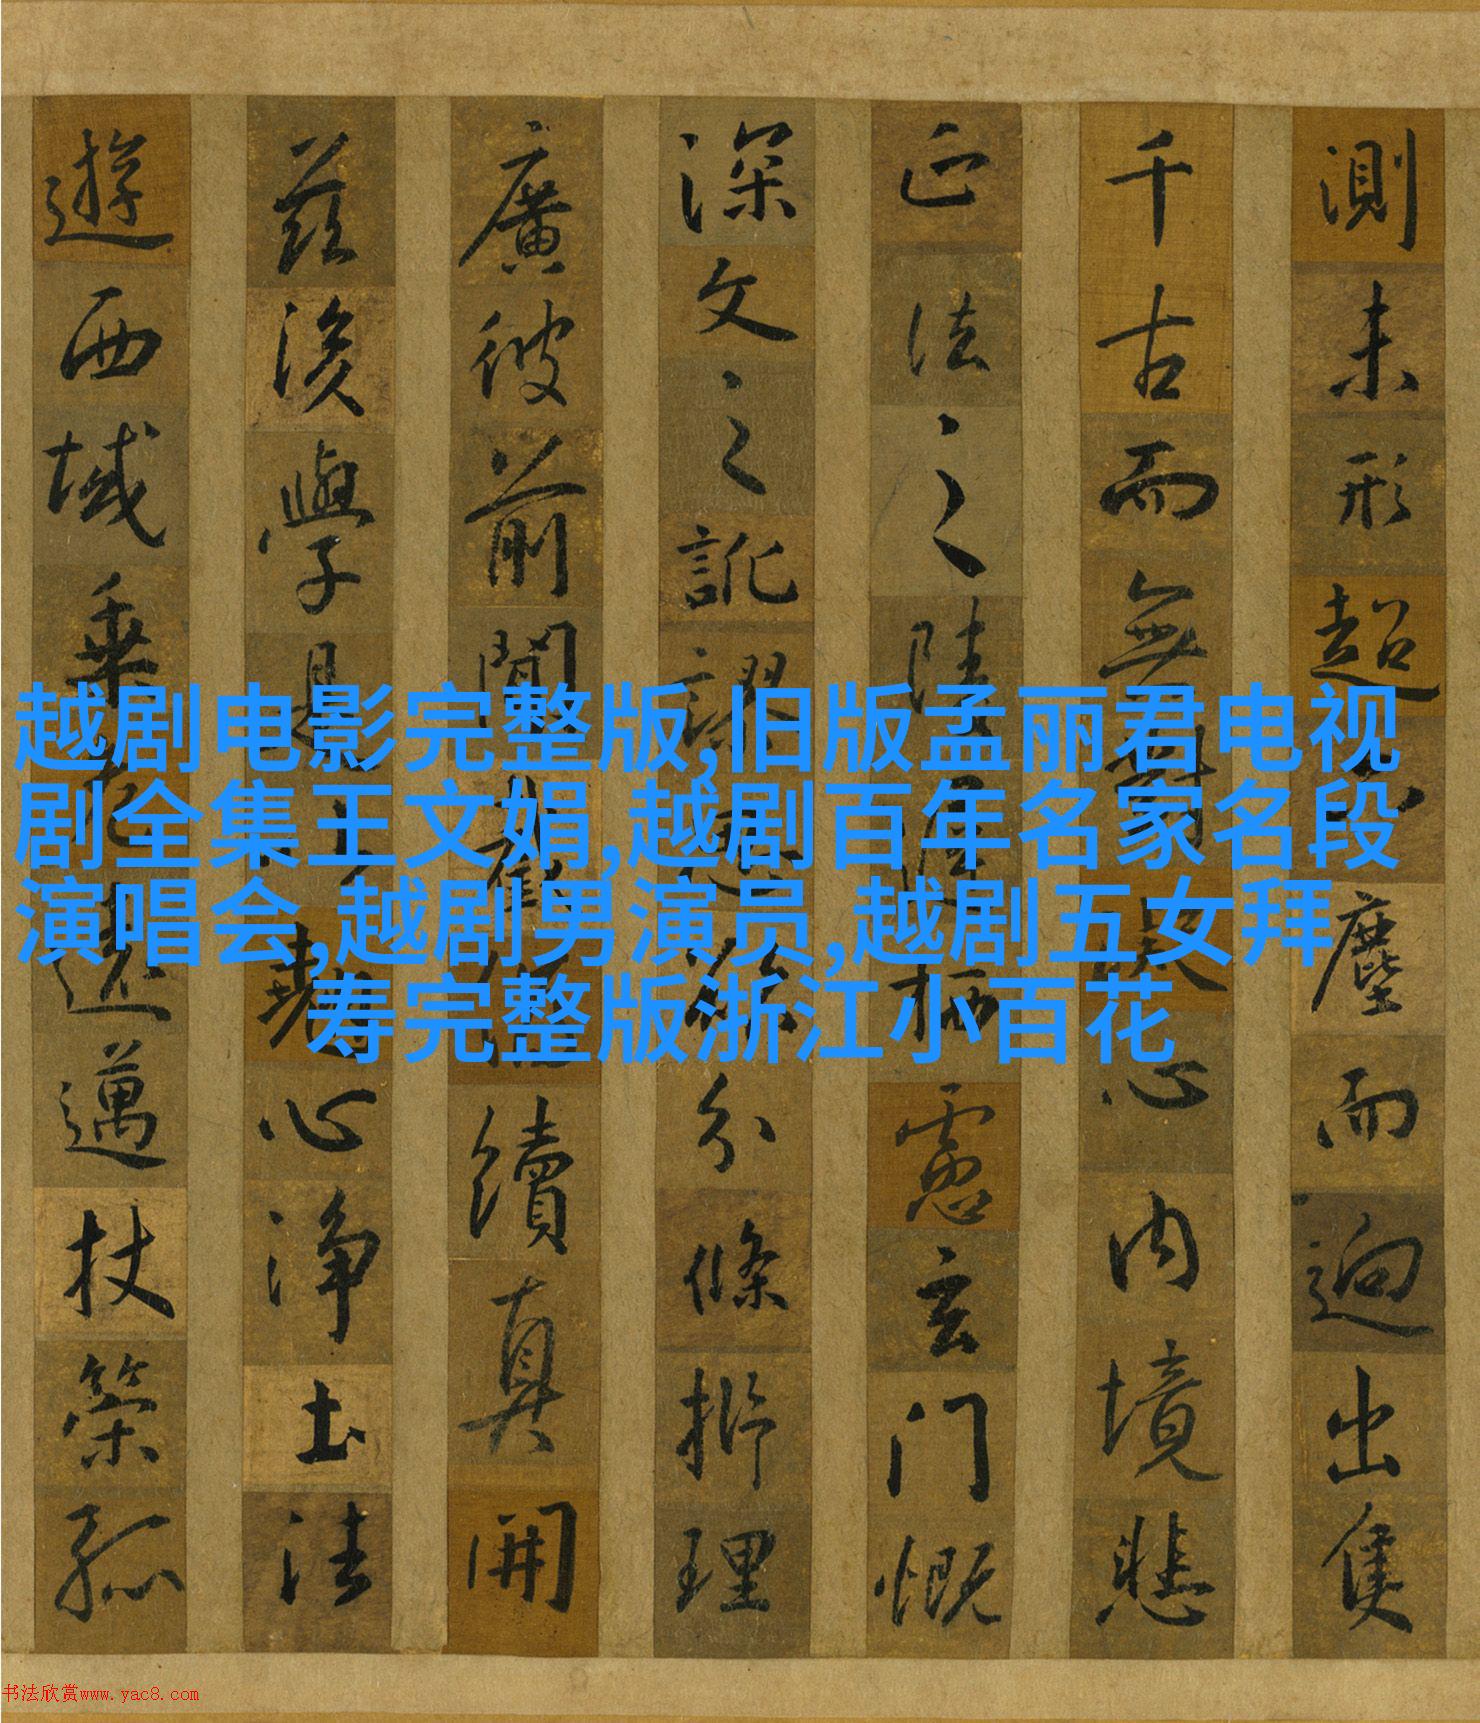 測未形超塵而迥出隻
千古而無對心內境悲
正法之陵遲栖慮玄門慨
深文之訛謬思欲分條析理
廣彼前聞截偽續真開
茲後學是以翹心淨土法
遊西域乘危遠邁杖策孤
越剧电影完整版,旧版孟丽君电视
剧全集王文娟,越剧百年名家名段
演唱会,越剧男演员,越剧五女拜
寿完整版浙江小百花
书法欣赏www.yac8.com